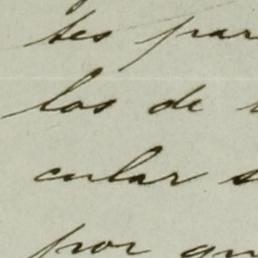 tes par
los de
cular s
por qu